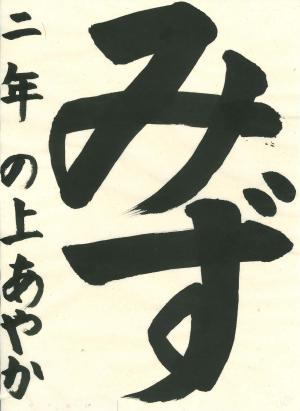 みず
二年 の上あやか